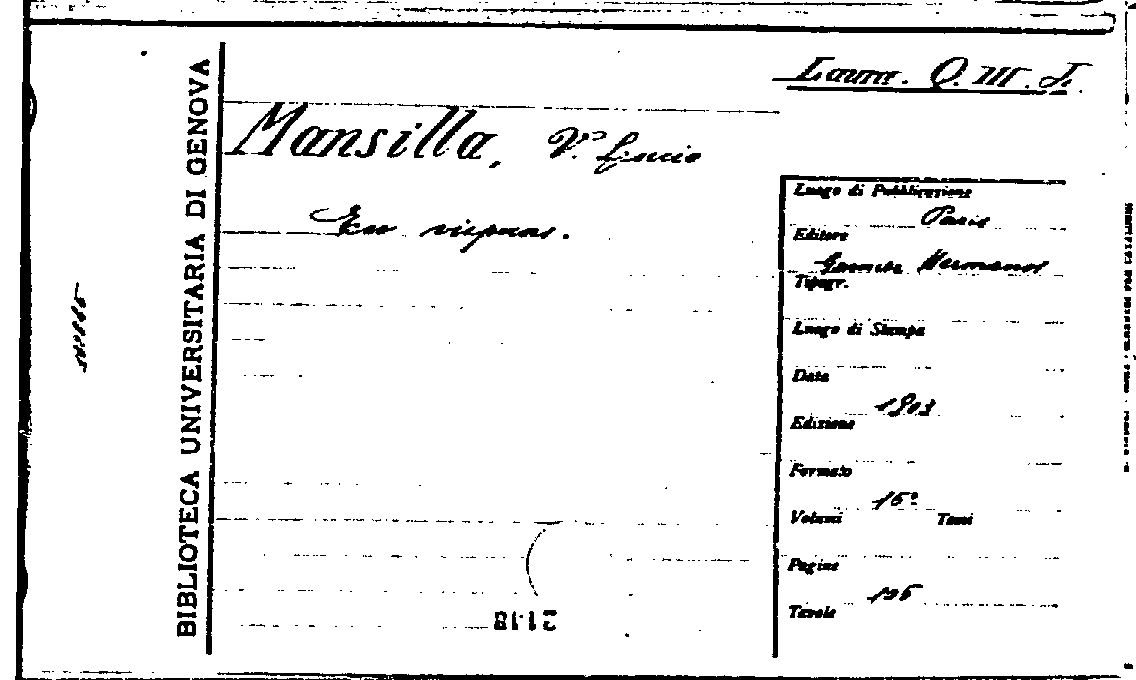 BIBLIOTECA UNIVERSITARIA DI GENOVA
Laura. Q. III. J.
Mansilla, V. Lucio
En visperas.
Luogo di Pubblicazione
Paris
Editore
Garnier Hermanos
Tipogr.
Luogo di Stampa
Data
1903
Edizione
Formato
16º
Volumi Tomi
Pagine
Tavole
2118